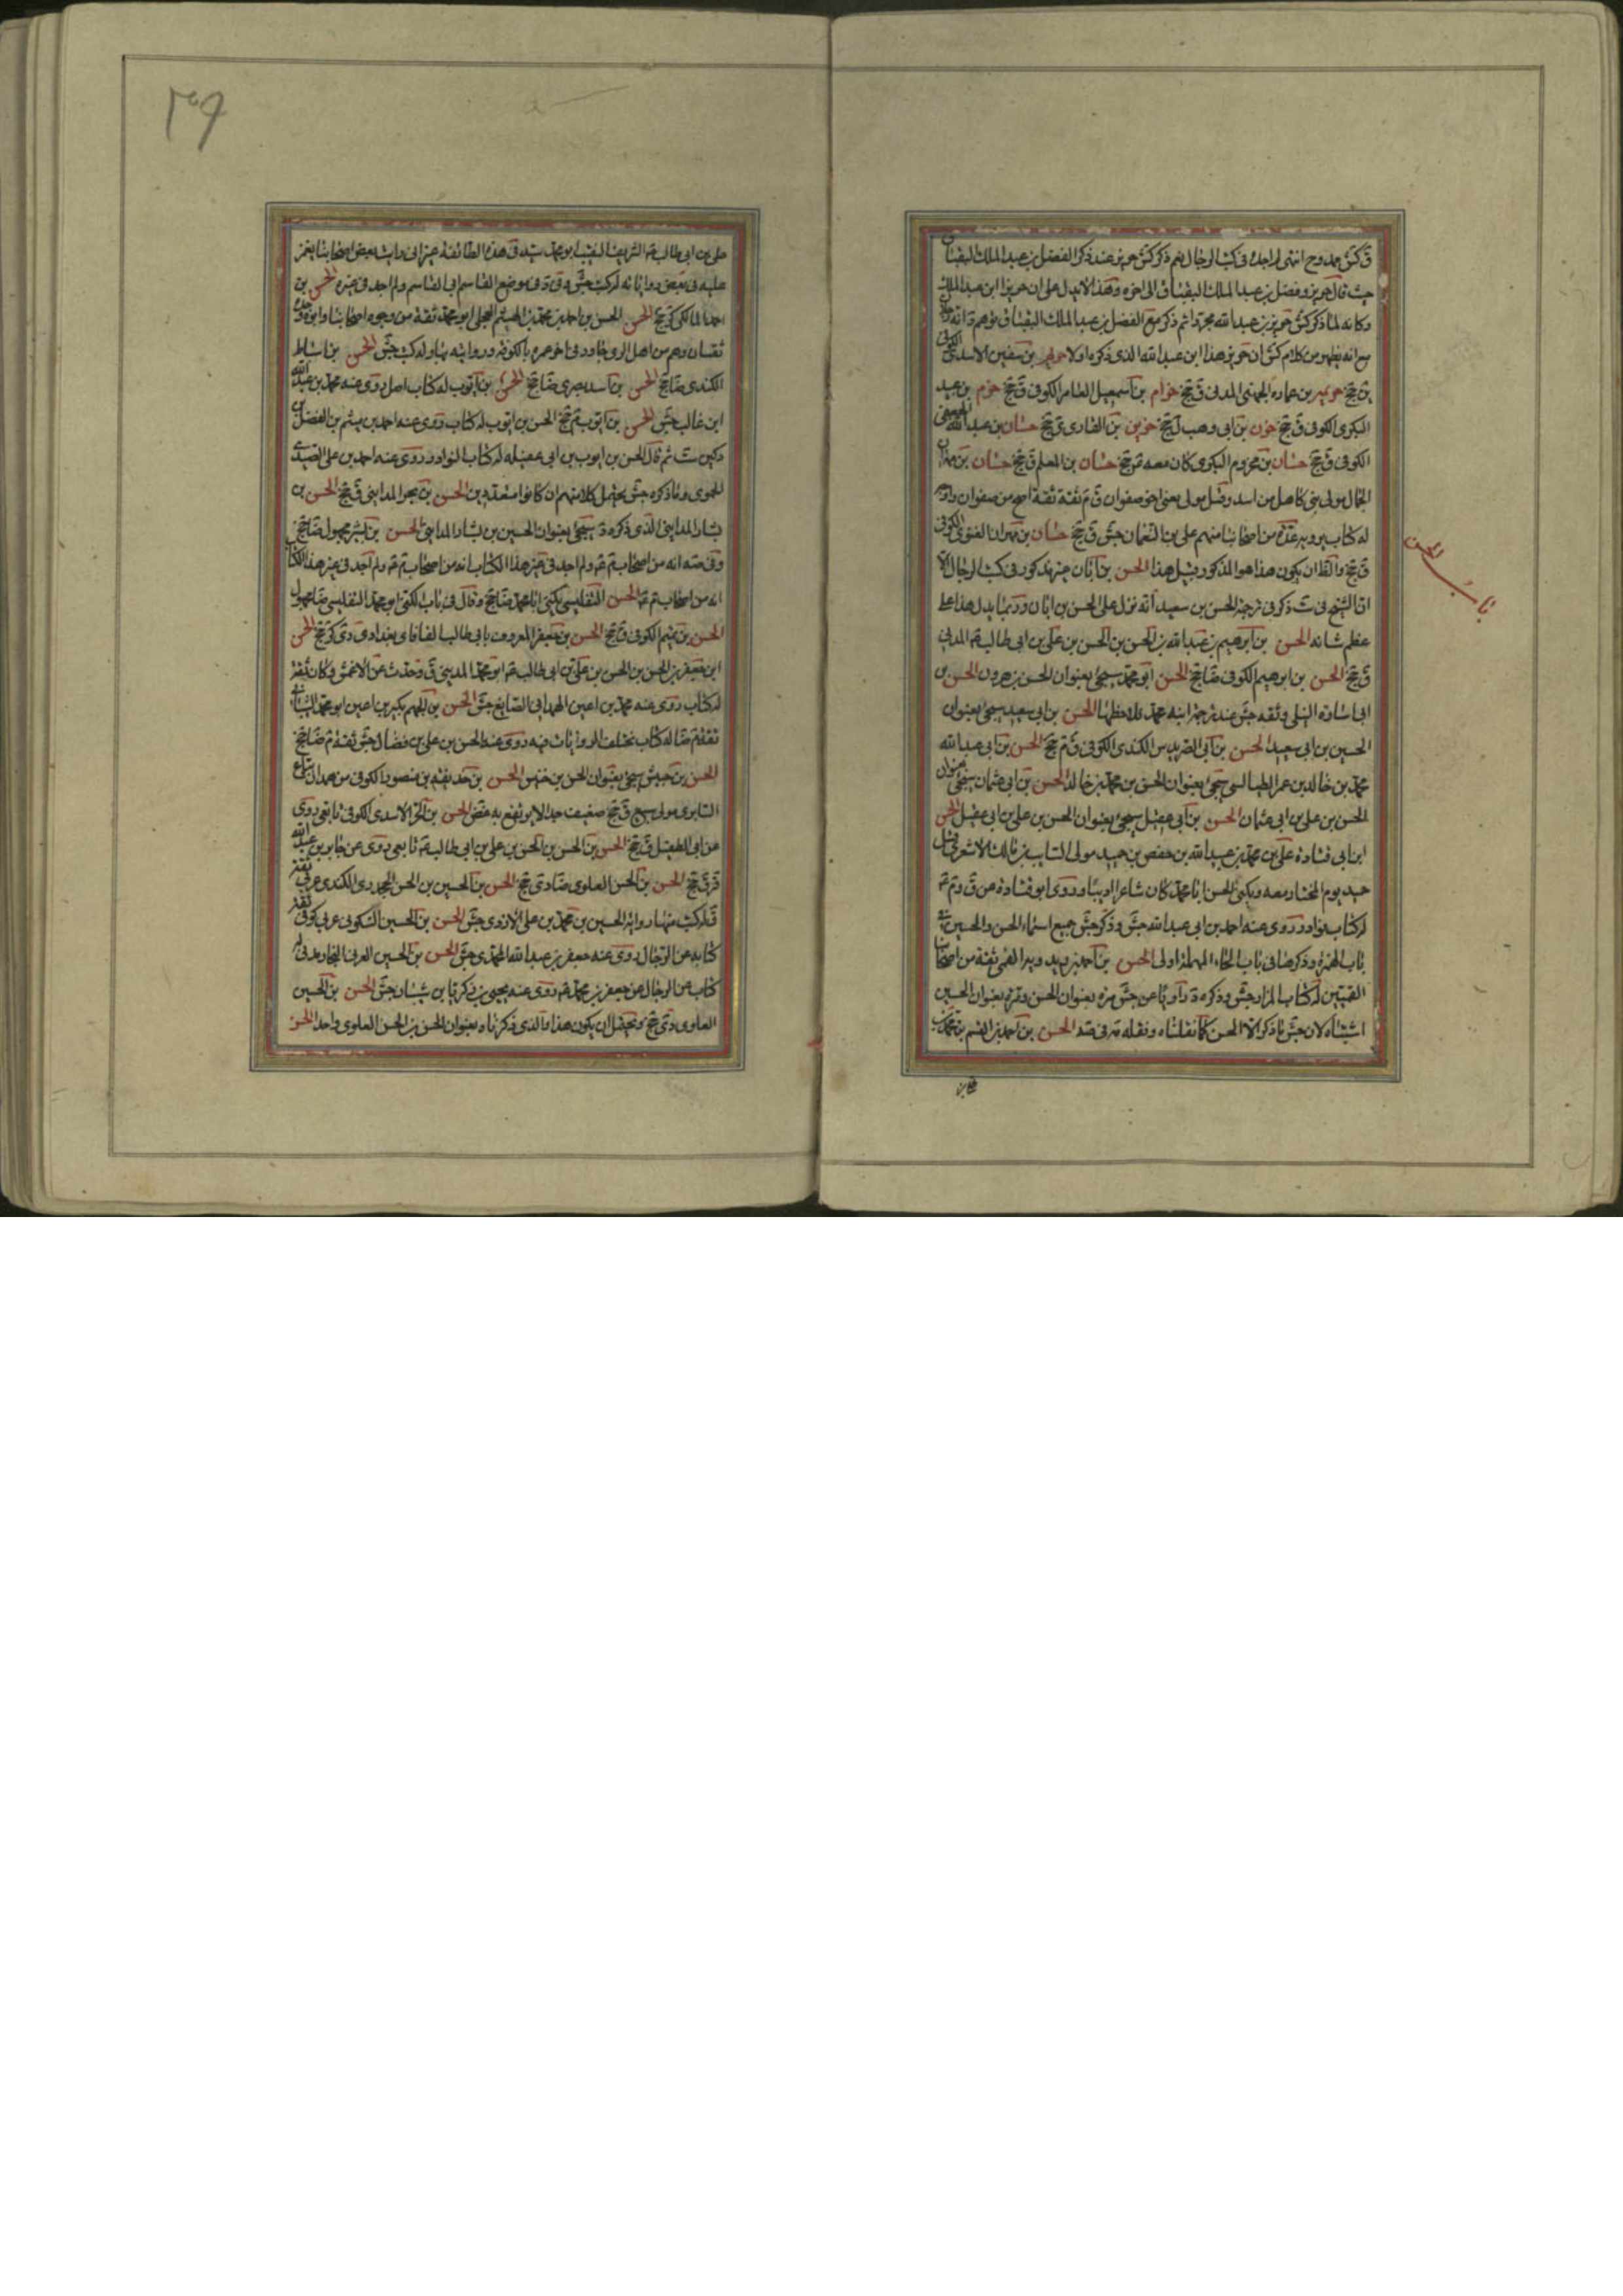 ق كش ممدوح انتهى ولم اجده فى كتب الرجال نعم ذكر كش حريز عند ذكر الفضل بن عبد الملك البقباق
حيث قال حريز وفضل بن عبد الملك البقباق الى اخره وهذا لا يدل على ان حريزا ابن عبد الملك
وكانه لما ذكر كش حريز بن عبد الله مجردا ثم ذكر مع الفضل بن عبد الملك البقباق توهم د انه
مع انه يظهر من كلام كش ان حريز هذا ابن عبد الله الذى ذكره اولا بن سفين الاسدى الكوفى
ين جخ بن عماره الجهنى المدنى ق جخ حزام بن اسمعيل العامرى الكوفى ق جخ حزم بن عبيد
البكرى الكوفى ق جخ حزن بن ابى وهب ل جخ بن القارى ى جخ حسان بن عبد الله الجعفى
الكوفى ق جخ حسان بن مخزوم البكرى كان معه جخ حسان بن المعلم ق جخ حسان بن مهران
الجمال مولى بنى كاهل من اسد وقيل مولى لغنى اخو صفوان ق م ثقة ثقة اصح من صفوان واوجه
له كتاب يرويه عدة من اصحابنا منهم على بن النعمان جش ق جخ حسان بن مهران الغنوى الكوفى
ق جخ والظ ان يكون هذا هو المذكور قبيل هذا الحسن بن ابان غير مذكور فى كتب الرجال الا
ان الشيخ فى ست ذكر فى ترجمة الحسن بن سعيد انه نزل على الحسن بن ابان وربما يدل هذا على
عظم شانه الحسن بن ابرهيم بن عبد الله بن الحسن بن الحسن بن على بن ابى طالب ع المدنى
ق جخ الحسن بن ابرهيم الكوفى ضا جخ الحسن ابو محمد سيجئ بعنوان الحسن بن هرون الحسن بن
ابى سارة النيلى وثقه جش عند ترجمة ابنه محمد فلاحظهما الحسن بن ابى سعيد سيجئ بعنوان
الحسين بن ابى سعيد الحسن بن ابى الكندى الكوفى ق م جخ الحسن بن ابى عبد الله
محمد بن خالد بن عمر الطيالسى سيجئ بعنوان الحسن بن محمد بن خالد الحسن بن ابى عثمان سيجئ بعنوان
الحسن بن على بن ابى عثمان الحسن بن ابى عقيل سيجئ بعنوان الحسن بن على بن ابى عقيل الحسن
ابن ابى قتادة على بن محمد بن عبيد الله بن حفص بن حميد مولى السايب بن مالك الاشعرى قتل
حميد يوم المختار معه ويكنى الحسن ابا محمد كان شاعرا اديبا وروى ابو قتادة عن ق و م
له كتاب نوادر روى عنه احمد بن ابى عبد الله جش وذكر جش جميع اسماء الحسن والحسين فى
باب الهمزة وذكرهما فى باب الحاء المهملة اولى الحسن بن احمد بن ريدويه القمى ثقة من اصحابنا
القميين له كتاب المزار جش وذكره د راويا عن جش مرة بعنوان الحسن ومرة بعنوان الحسين
اشتباه لان جش ما ذكر الا الحسن كما نقلناه ونقله مه فى صه الحسن بن احمد بن القسم بن محمد بن
على بن
باب الحسن
٣٩
على بن ابى طالب ع الشريف النقيب ابو محمد سيد فى هذه الطائفة غير انى رايت بعض اصحابنا يغمز
عليه فى بعض رواياته له كتب جش وفى د فى موضع القاسم ابى القاسم ولم اجد فى غيره الحسن بن
احمد المالكى كر جخ الحسن الحسن بن احمد بن محمد بن الهيثم العجلى ابو محمد ثقة من وجوه اصحابنا وابوه وجده
ثقتان وهم من اهل الرى جاور فى اخر عمره بالكوفة ورايته بها وله كتب جش الحسن بن اسباط
الكندى ضا جخ الحسن بن اسد بصرى ضا جخ الحسن بن ايوب له كتاب اصل روى عنه محمد بن عبد الله
ابن غالب جش الحسن بن ايوب م جخ الحسن بن ايوب له كتاب روى عنه احمد بن ميثم بن الفضل بن
دكين ست ثم قال الحسن بن ايوب بن ابى عقيلة له كتاب النوادر روى عنه احمد بن على الصيدى
الحموى وما ذكره جش يحتمل كلا منهم ان كانوا متعددين الحسن بن بحر المداينى ق جخ الحسن بن
بشار المداينى الذى ذكره د سيجئ بعنوان الحسين بن بشار المداينى الحسن بن بشير مجهول ضا جخ
وفى صه انه من اصحاب م ع ولم اجد فى غير هذا الكتاب انه من اصحاب م ع ولم اجد فى غير هذا الكتاب
انه من اصحاب م ع الحسن التفليسى يكنى ابا محمد ضا جخ وقال فى باب الكنى ابو محمد التفليسى ضا مجهول
الحسن بن تميم الكوفى ق جخ الحسن بن جعفر المعروف بابى طالب الفافاى بغدادى دى كر جخ الحسن
ابن جعفر بن الحسن بن الحسن بن على بن ابى طالب ع ابو محمد المدينى ق وحدث عن الاعمش وكان ثقة
له كتاب روى عنه محمد بن اعين الهمدانى الصايغ جش الحسن بن الجهم بكير بن اعين ابو محمد الشيبانى
ثقة م ضا له كتاب تختلف الروايات فيه روى عنه الحسن بن على بن فضال جش ثقة م ضا جخ
الحسن بن حبيش سيجئ بعنوان الحسن بن خنيس الحسن بن حذيفة بن منصور الكوفى من همدان بياع
السابرى مولى سبيع ق جخ ضعيف جدا لا يرتفع به غض الحسن بن الحر الاسدى الكوفى تابعى روى
عن ابى الطفيل ق جخ الحسن بن الحسن بن الحسن بن على بن ابى طالب ع تابعى روى عن جابر بن عبد الله
قر ق جخ الحسن بن الحسن العلوى ضا دى جخ الحسن بن الحسين بن الحسن الجحدرى الكندى عربى ثقة
ق له كتب منها رواية الحسين بن محمد بن على الازدى جش الحسن بن الحسين السكونى عربى كوفى ثقة
كتابه عن الرجال روى عنه جعفر بن عبد الله المحمدى جش الحسن بن الحسين العرنى النجار مدنى له
كتاب عن الرجال عن جعفر بن محمد ع روى عنه يحيى بن زكريا بن شيبان جش الحسن بن الحسين
العلوى دى جخ ويحتمل ان يكون هذا والذى ذكرناه بعنوان الحسن بن الحسن العلوى واحد الحسن